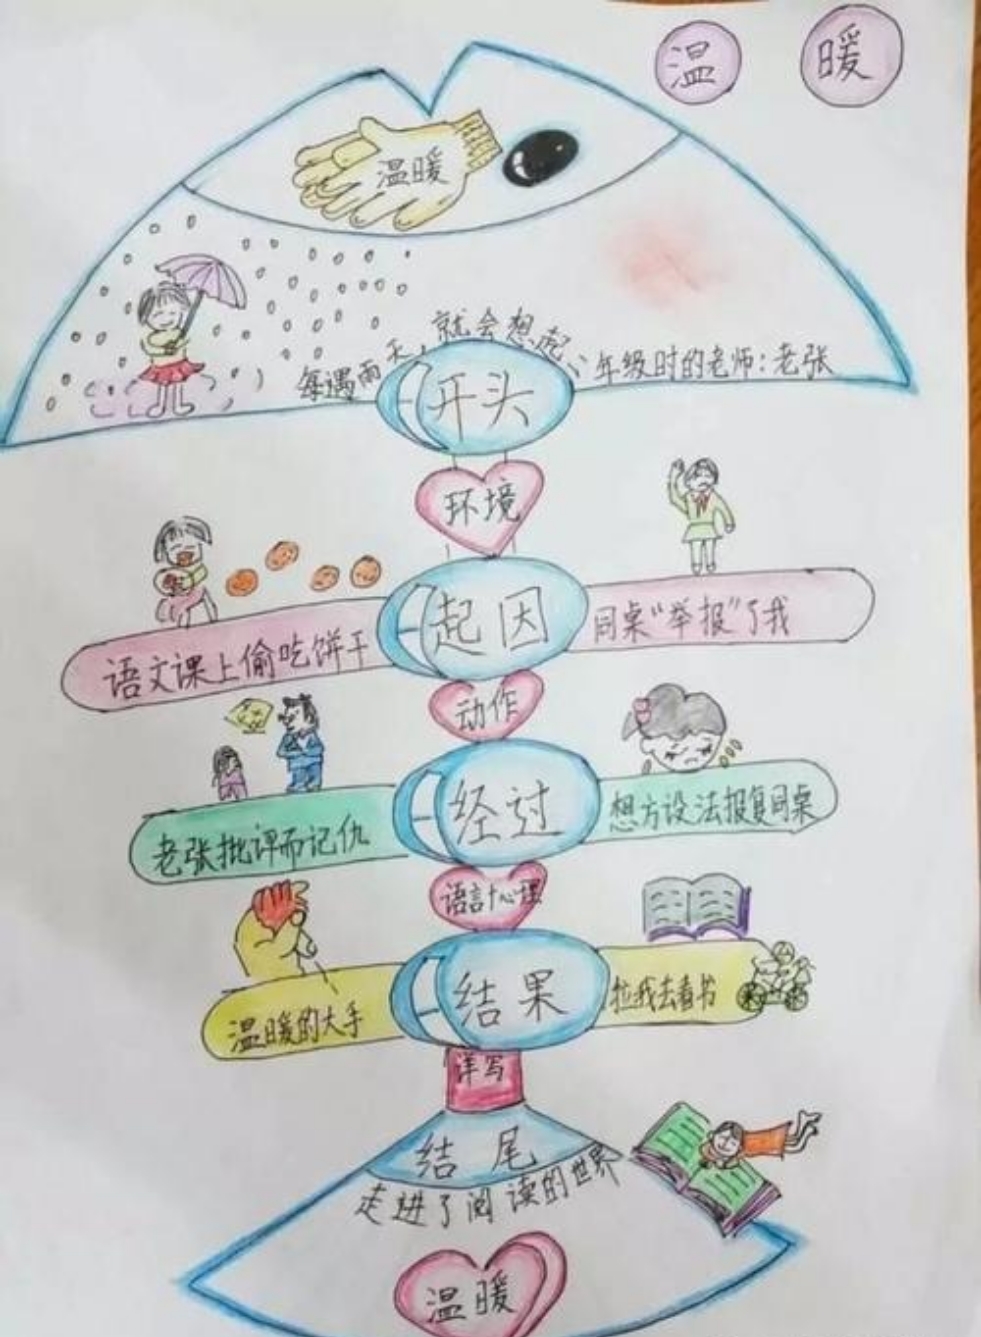 温 暖
温暖
每遇雨天,就会想起六年级时的老师:老张
开头
环境
起因
语文课上偷吃饼干
同桌“举报”了我
动作
经过
老张批评而记仇
想方设法报复同桌
语言+心理
结果
温暖的大手
拉我去看书
详写
结尾
走进了阅读的世界
温暖